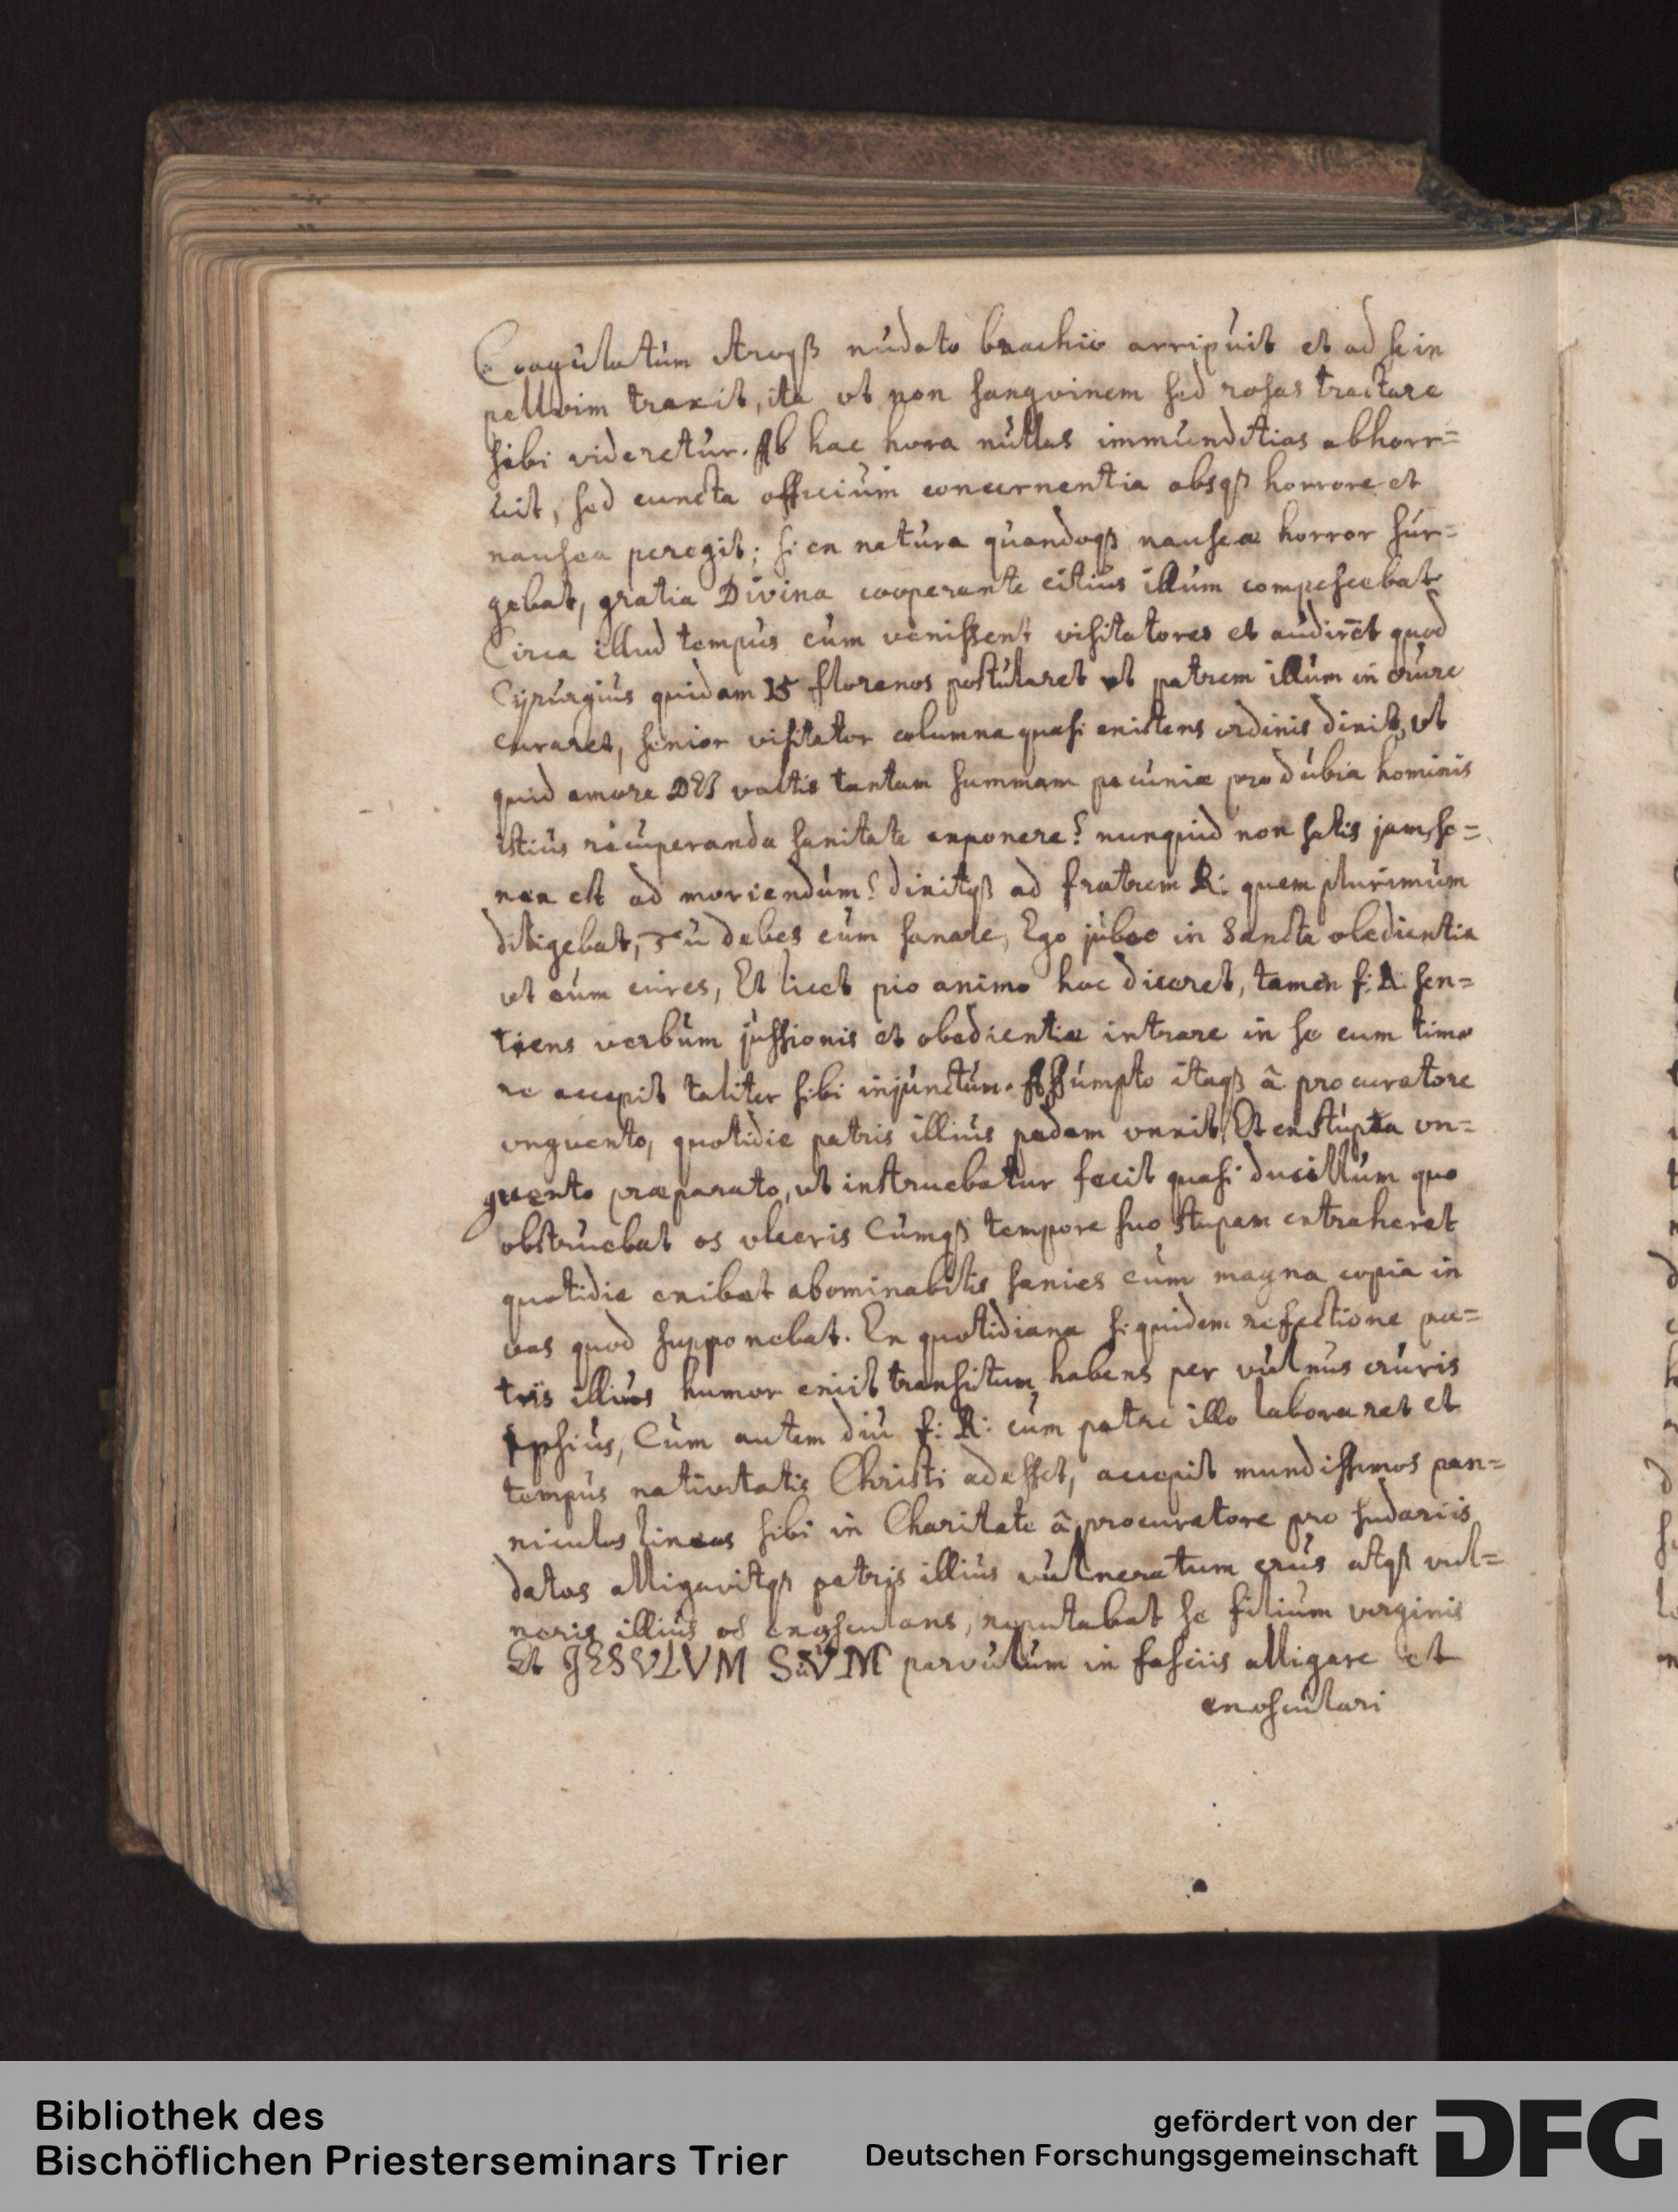 Coagulatum utroqß nudato brachio arripuit et ad se in
pelluim traxit, ita vt non sangvinem sed rosas tractare
sibi videretur. Ab hac hora nullas immunditias abhorr=
uit, sed cuncta officium concernentia absqß horrore et
nausea peregit; si ex natura quandoqß nauseæ horror sur=
gebat, gratia Divina cooperante citius illum compescebat
Circa illud tempus cum venissent visitatores et audirēt quod
Cyrurgius quidam 15 florenos postularet vt patrem illum in crure
curaret, senior visitator columna quasi existens ordinis dixit, vt
quid amore DEI vultis tantam summam pecuniæ pro dubia hominis
istius recuperanda sanitate exponere? nunquid non satis jam se=
nex est ad moriendum? dixitqß ad fratrem R: quem plurimum
diligebat, Tu debes eum sanare, Ego jubeo in Sancta obedientia
vt eum cures, Et licet pio animo hoc diceret, tamen f: R: sen=
tiens verbum jussionis et obedientiæ intrare in se cum timo
re accepit taliter sibi injunctum. Assumpto itaqß â procuratore
vnguento, quotidie patris illius pedem vnxit, Et ex stuppa vn=
guento præparato, vt instruebatur fecit quasi ducillum quo
obstruebat os vlceris Cumqß tempore suo stupam extraheret
quotidie exibat abominabilis sanies cum magna copia in
vas quod supponebat. Ex quotidiana siquidem refectione pa=
tris illius humor exiit transitum habens per vulnus cruris
ipsius, Cum autem diu f: R: cum patre illo laboraret et
tempus nativitatis Christi adesset, accepit mundissimos pan=
niculos lineos sibi in Charitate â procuratore pro sudariis
datos alligavitqß patris illius vulneratum crus atqß vul=
neris illius os exosculans, reputabat se filium virginis
Et JESVLVM SuVM parvulum in fasciis alligare et
exosculari
Bibliothek des
Bischöflichen Priesterseminars Trier
gefördert von der
Deutschen Forschungsgemeinschaft
DFG